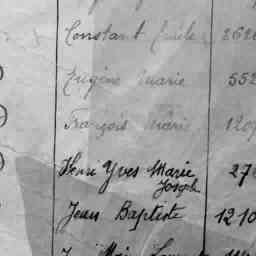 Constant Emile 262
Eugène Marie 552
François Marie 120
Henri Yves Marie 27
Joseph
Jean Baptiste 1210